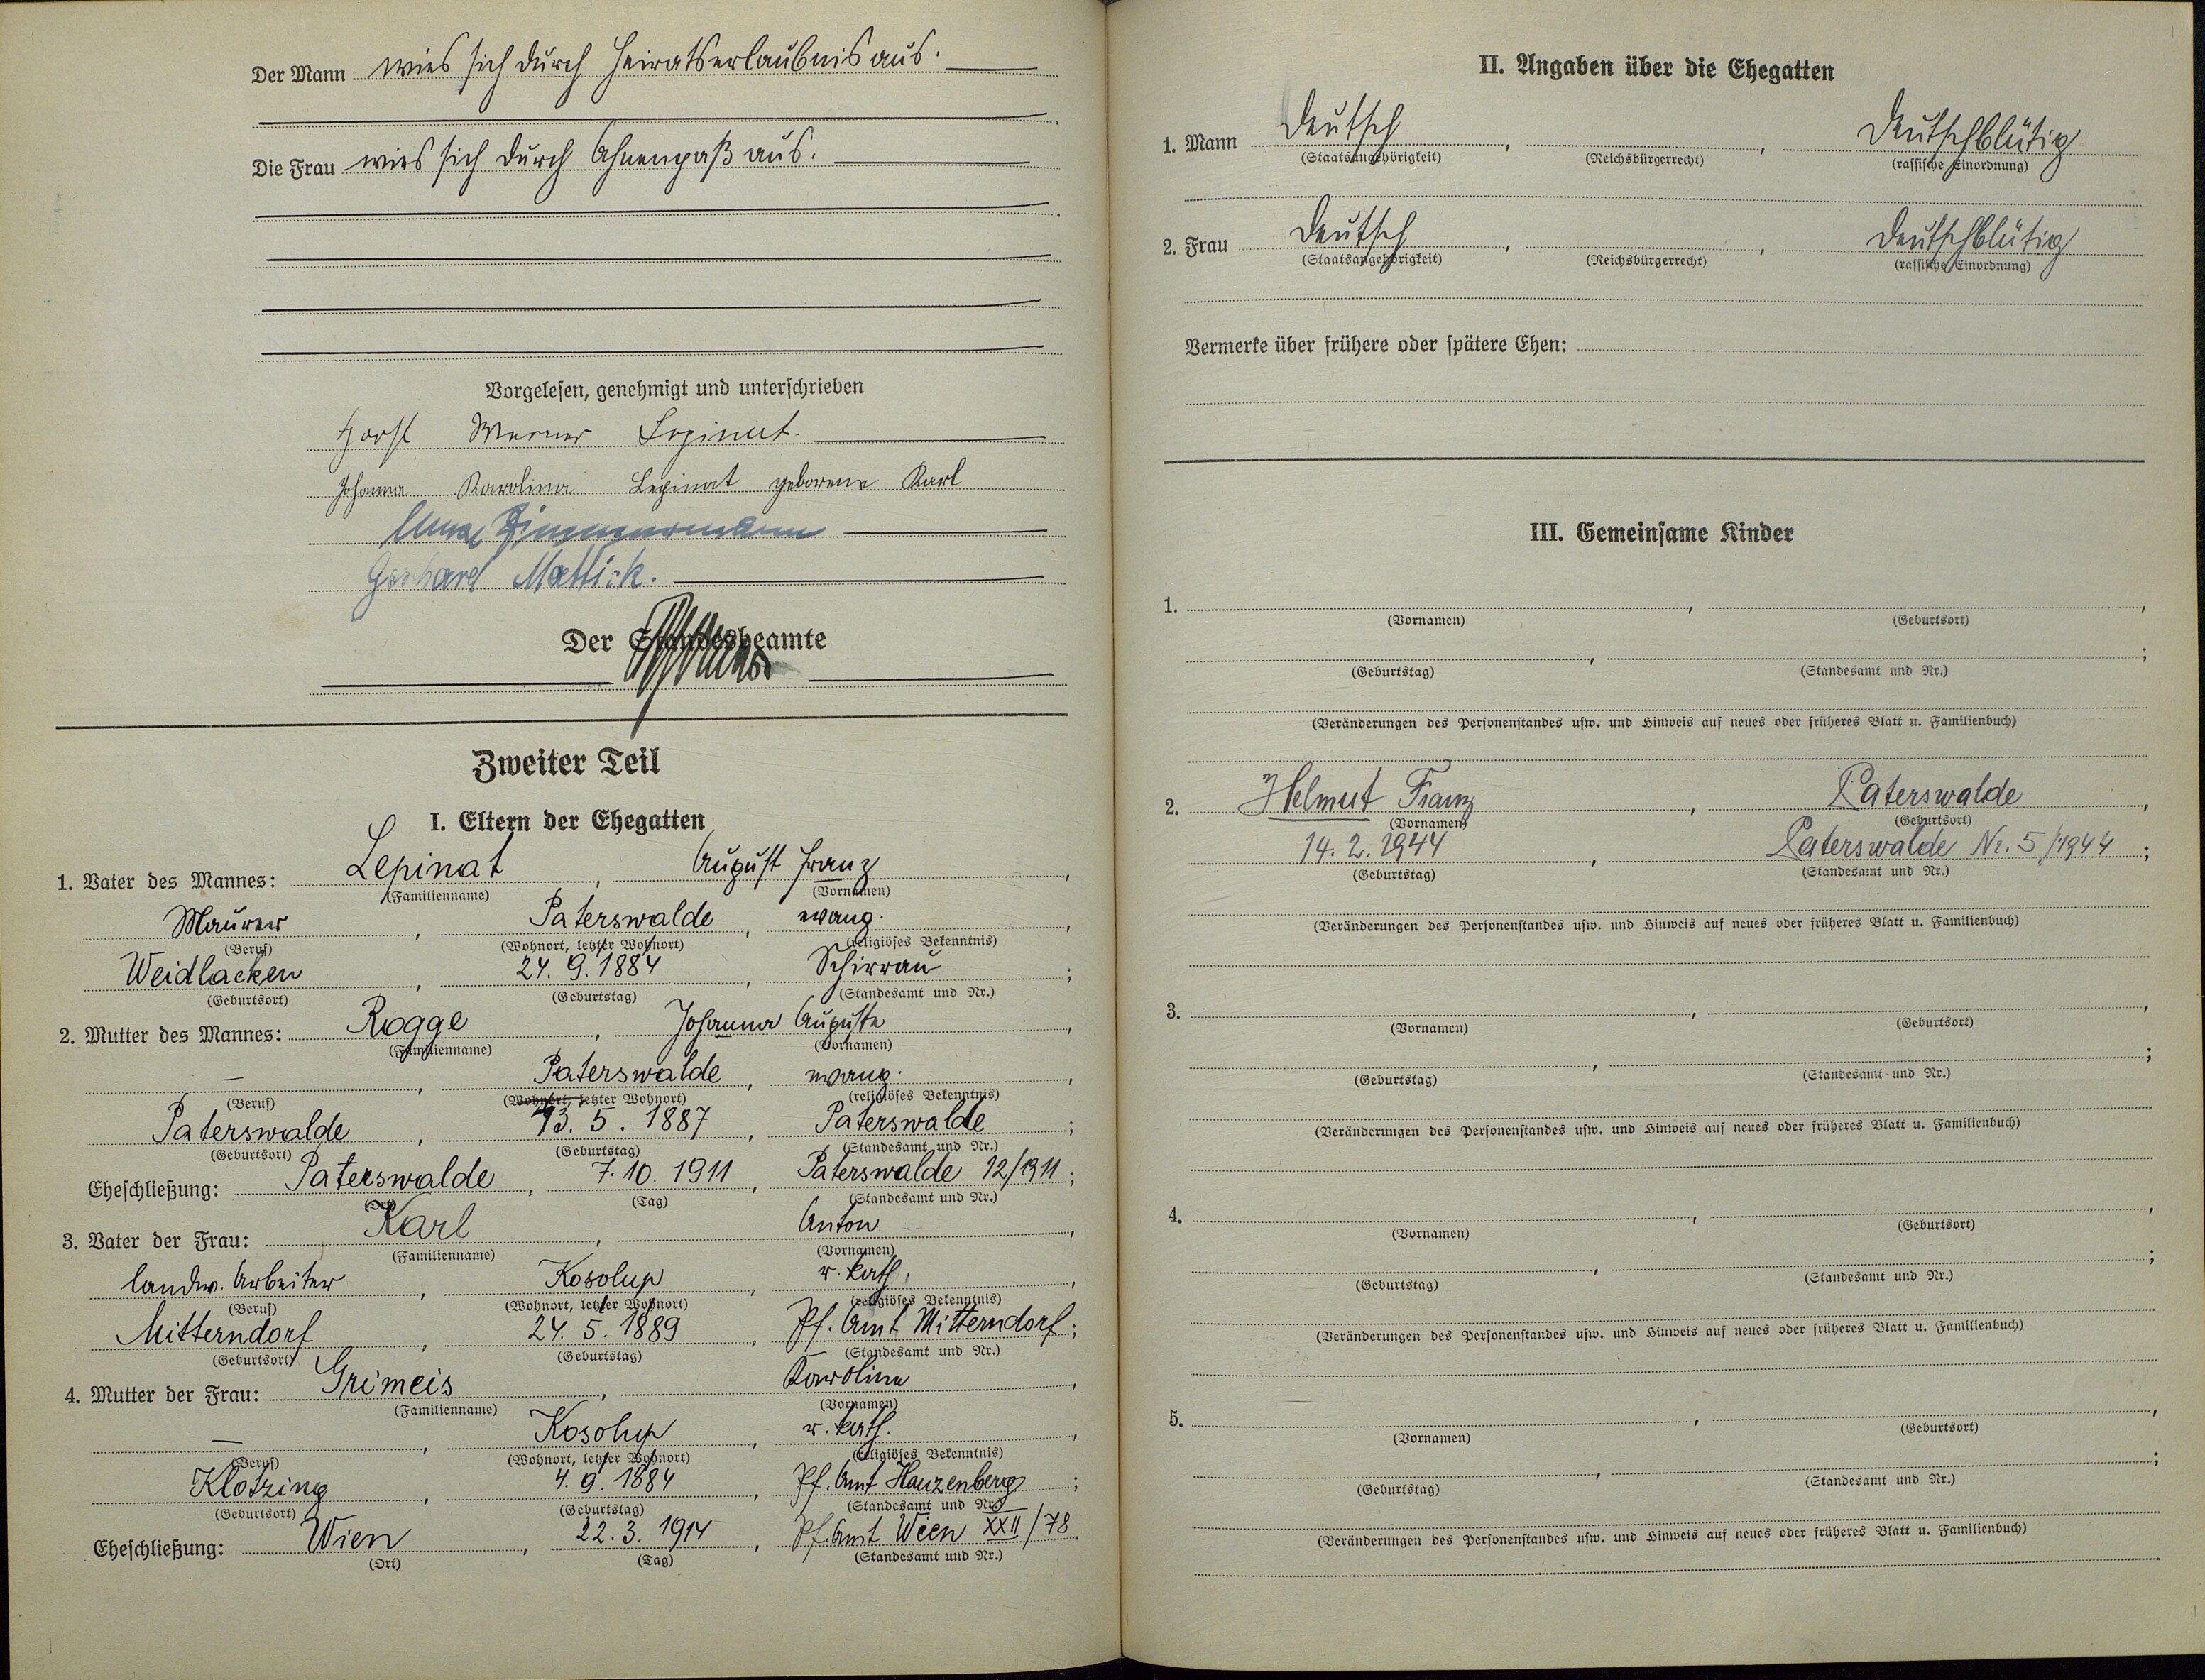 Der Mann wies sich durch Heiratserlaubnis aus.
Die Frau wies sich durch Ahnenpaß aus.
Vorgelesen, genehmigt und unterschrieben
Horst Werner Lepinat.
Johanna Karolina Lepinat geborene Karl
Zimmermann
Gerhard Mattick.
Der Standesbeamte
Zweiter Teil
I. Eltern der Ehegatten
1. Vater des Mannes: Lepinat, August Franz,
(Familienname) (Vornamen)
Maurer, Paterswalde, evang.,
(Beruf) (Wohnort, letzter Wohnort) (religiöses Bekenntnis)
Weidlacken, 24. 9. 1884, Schirrau;
(Geburtsort) (Geburtstag) (Standesamt und Nr.)
2. Mutter des Mannes: Rogge, Johanna Auguste,
(Familienname) (Vornamen)
—, Paterswalde, evang.,
(Beruf) (Wohnort, letzter Wohnort) (religiöses Bekenntnis)
Paterswalde, 13. 5. 1887, Paterswalde;
(Geburtsort) (Geburtstag) (Standesamt und Nr.)
Eheschließung: Paterswalde, 7. 10. 1911, Paterswalde 12/1911;
(Ort) (Tag) (Standesamt und Nr.)
3. Vater der Frau: Karl, Anton,
(Familienname) (Vornamen)
landw. Arbeiter, Kosolup, r. kath.,
(Beruf) (Wohnort, letzter Wohnort) (religiöses Bekenntnis)
Mitterndorf, 24. 5. 1889, Pf. Amt Mitterndorf;
(Geburtsort) (Geburtstag) (Standesamt und Nr.)
4. Mutter der Frau: Grimeis, Karoline,
(Familienname) (Vornamen)
—, Kosolup, r. kath.,
(Beruf) (Wohnort, letzter Wohnort) (religiöses Bekenntnis)
Klotzing, 4. 9. 1884, Pf. Amt Hauzenberg;
(Geburtsort) (Geburtstag) (Standesamt und Nr.)
Eheschließung: Wien, 22. 3. 1914, Pf. Amt Wien XXII/78.
(Ort) (Tag) (Standesamt und Nr.)
II. Angaben über die Ehegatten
1. Mann Deutsch, , Deutschblütig
(Staatsangehörigkeit) (Reichsbürgerrecht) (rassische Einordnung)
2. Frau Deutsch, , Deutschblütig
(Staatsangehörigkeit) (Reichsbürgerrecht) (rassische Einordnung)
Vermerke über frühere oder spätere Ehen:
III. Gemeinsame Kinder
1. , ,
(Vornamen) (Geburtsort)
, ;
(Geburtstag) (Standesamt und Nr.)
(Veränderungen des Personenstandes usw. und Hinweis auf neues oder früheres Blatt u. Familienbuch)
2. Helmut Franz, Paterswalde,
(Vornamen) (Geburtsort)
14. 2. 1944, Paterswalde Nr. 5/1944;
(Geburtstag) (Standesamt und Nr.)
(Veränderungen des Personenstandes usw. und Hinweis auf neues oder früheres Blatt u. Familienbuch)
3. , ,
(Vornamen) (Geburtsort)
, ;
(Geburtstag) (Standesamt und Nr.)
(Veränderungen des Personenstandes usw. und Hinweis auf neues oder früheres Blatt u. Familienbuch)
4. , ,
(Vornamen) (Geburtsort)
, ;
(Geburtstag) (Standesamt und Nr.)
(Veränderungen des Personenstandes usw. und Hinweis auf neues oder früheres Blatt u. Familienbuch)
5. , ,
(Vornamen) (Geburtsort)
, ;
(Geburtstag) (Standesamt und Nr.)
(Veränderungen des Personenstandes usw. und Hinweis auf neues oder früheres Blatt u. Familienbuch)